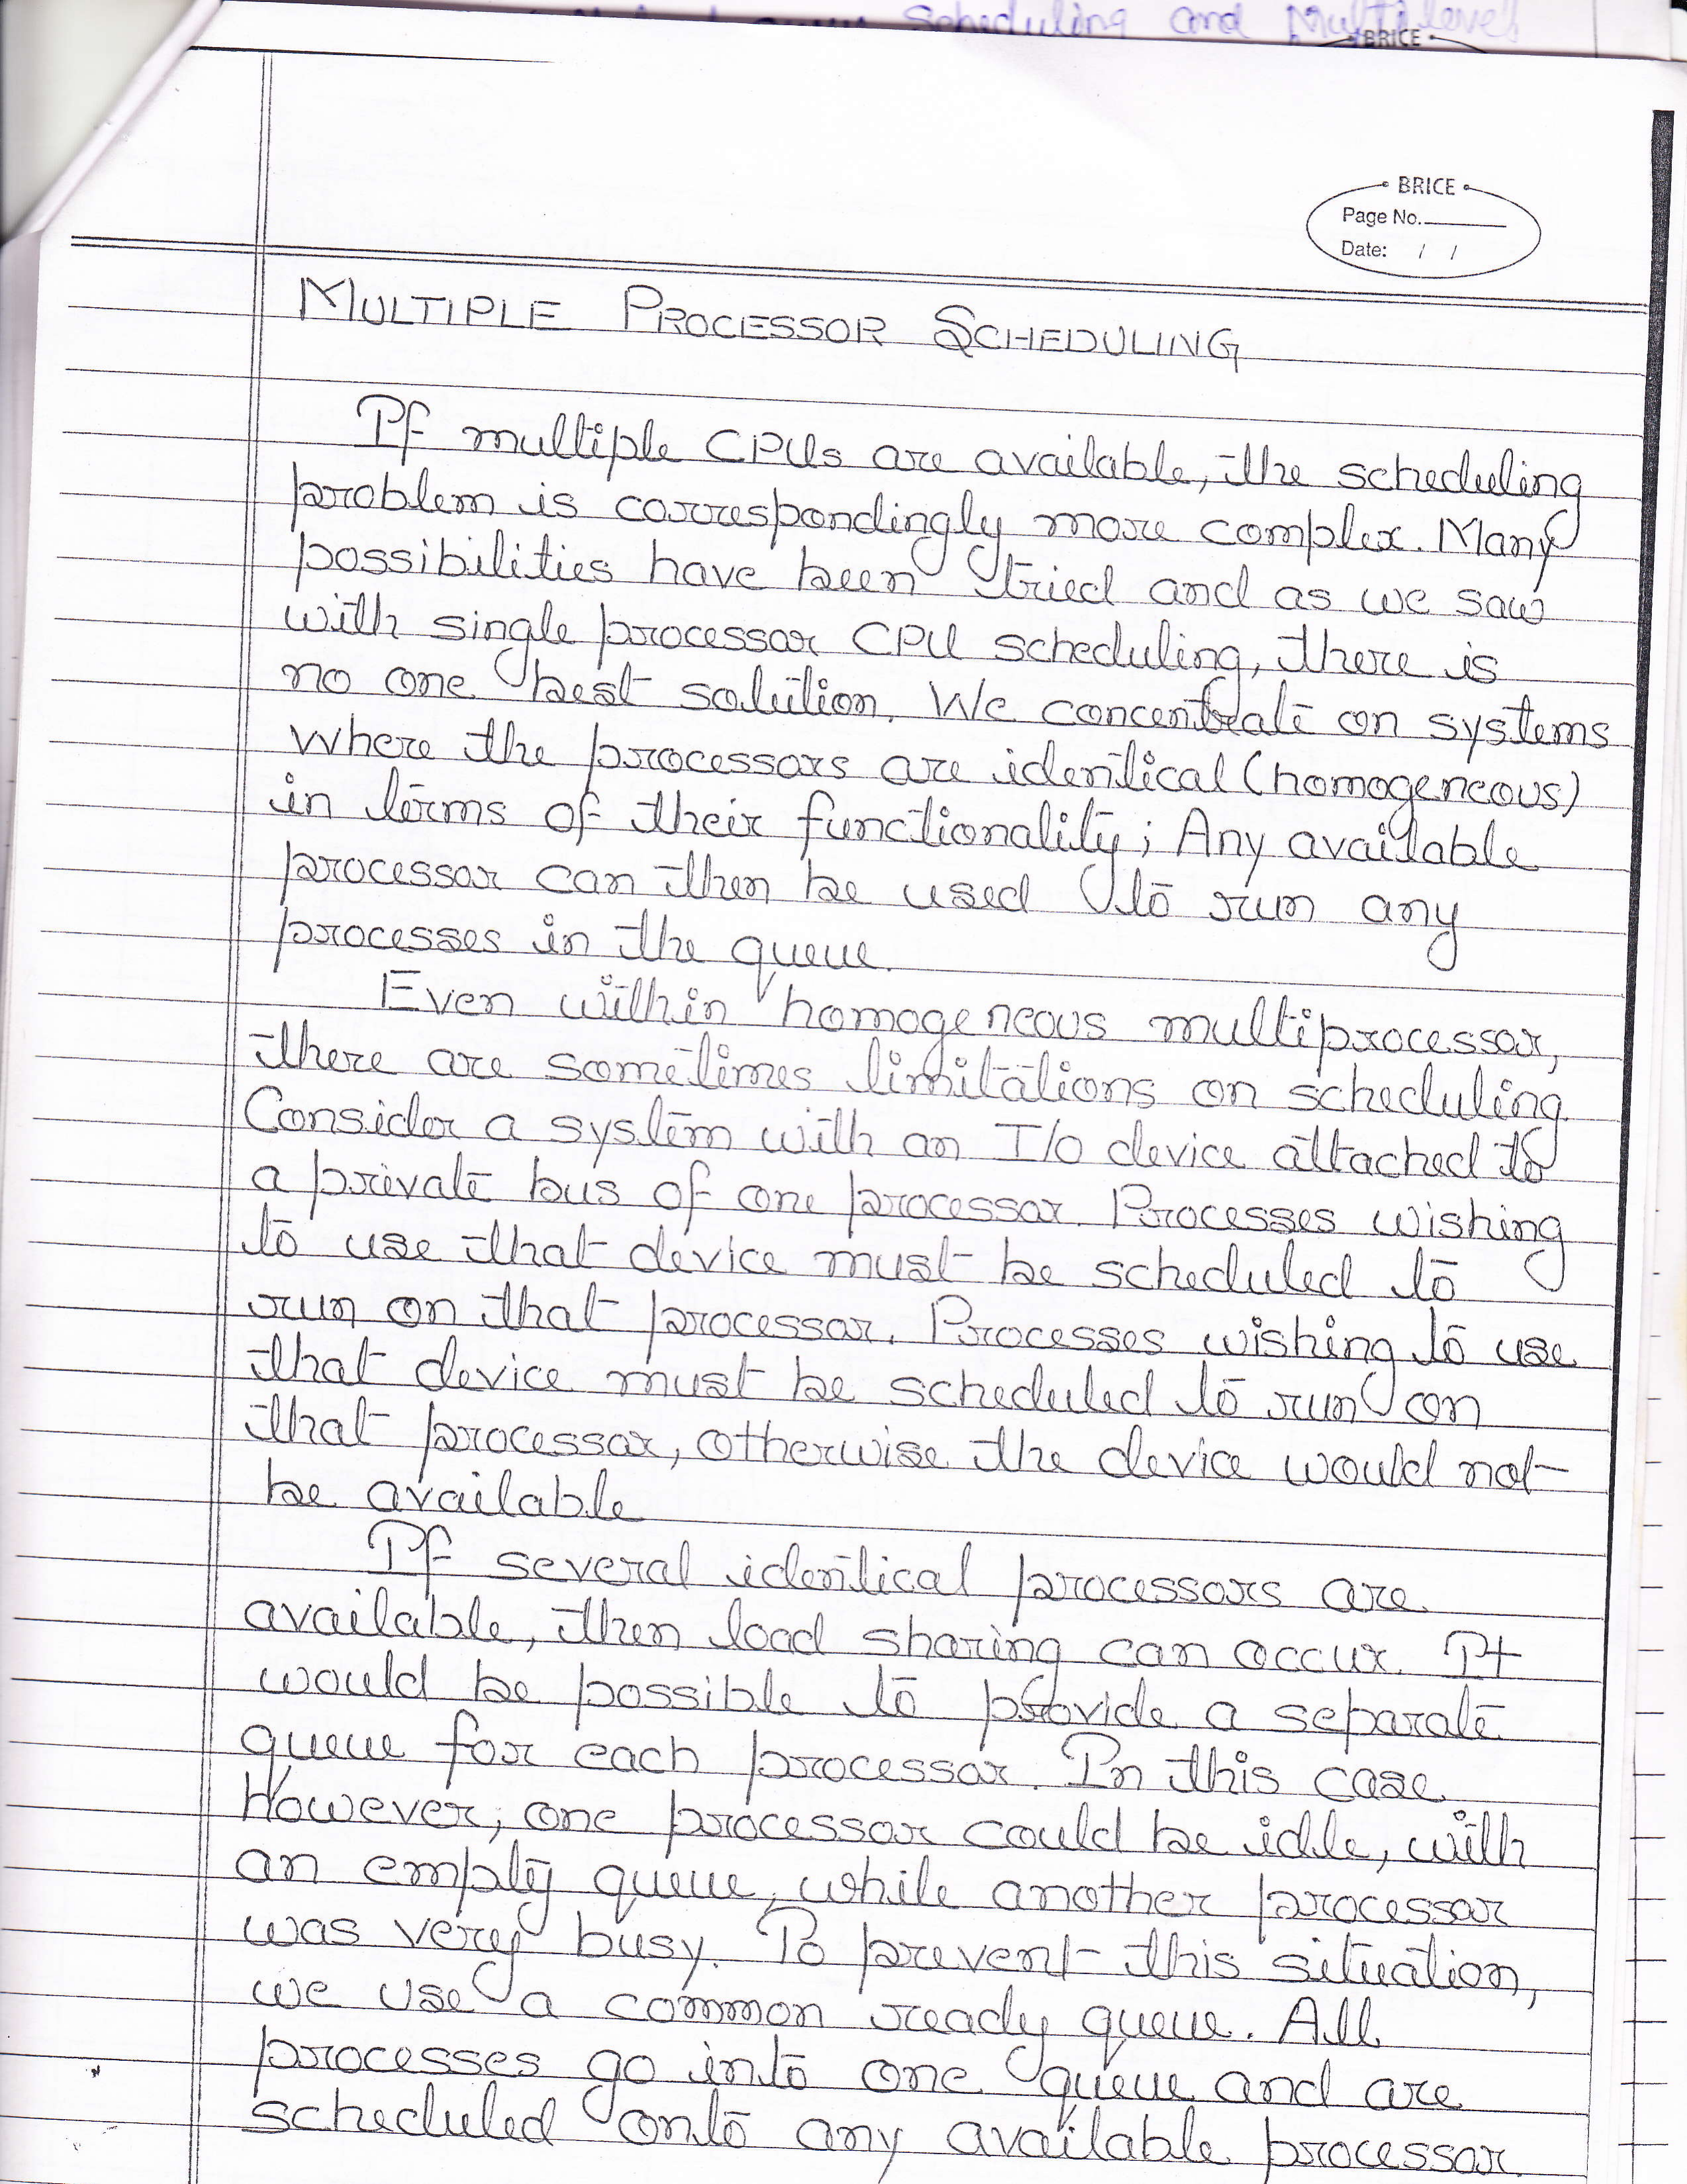 Scheduling and Multilevel
BRICE
BRICE
Page No.
Date: / /
MULTIPLE PROCESSOR SCHEDULING
If multiple CPUs are available, the scheduling
problem is correspondingly more complex. Many
possibilities have been tried and as we saw
with single processor CPU scheduling, there is
no one best solution. We concentrate on systems
where the processors are identical (homogeneous)
in terms of their functionality; Any available
processor can then be used to run any
processes in the queue.
Even within homogeneous multiprocessor,
there are sometimes limitations on scheduling.
Consider a system with an I/O device attached to
a private bus of one processor. Processes wishing
to use that device must be scheduled to
run on that processor. Processes wishing to use
that device must be scheduled to run on
that processor, otherwise the device would not
be available
If several identical processors are
available, then load sharing can occur. It
would be possible to provide a separate
queue for each processor. In this case
However, one processor could be idle, with
an empty queue, while another processor
was very busy. To prevent this situation,
we use a common ready queue. All
processes go into one queue and are
scheduled onto any available processor